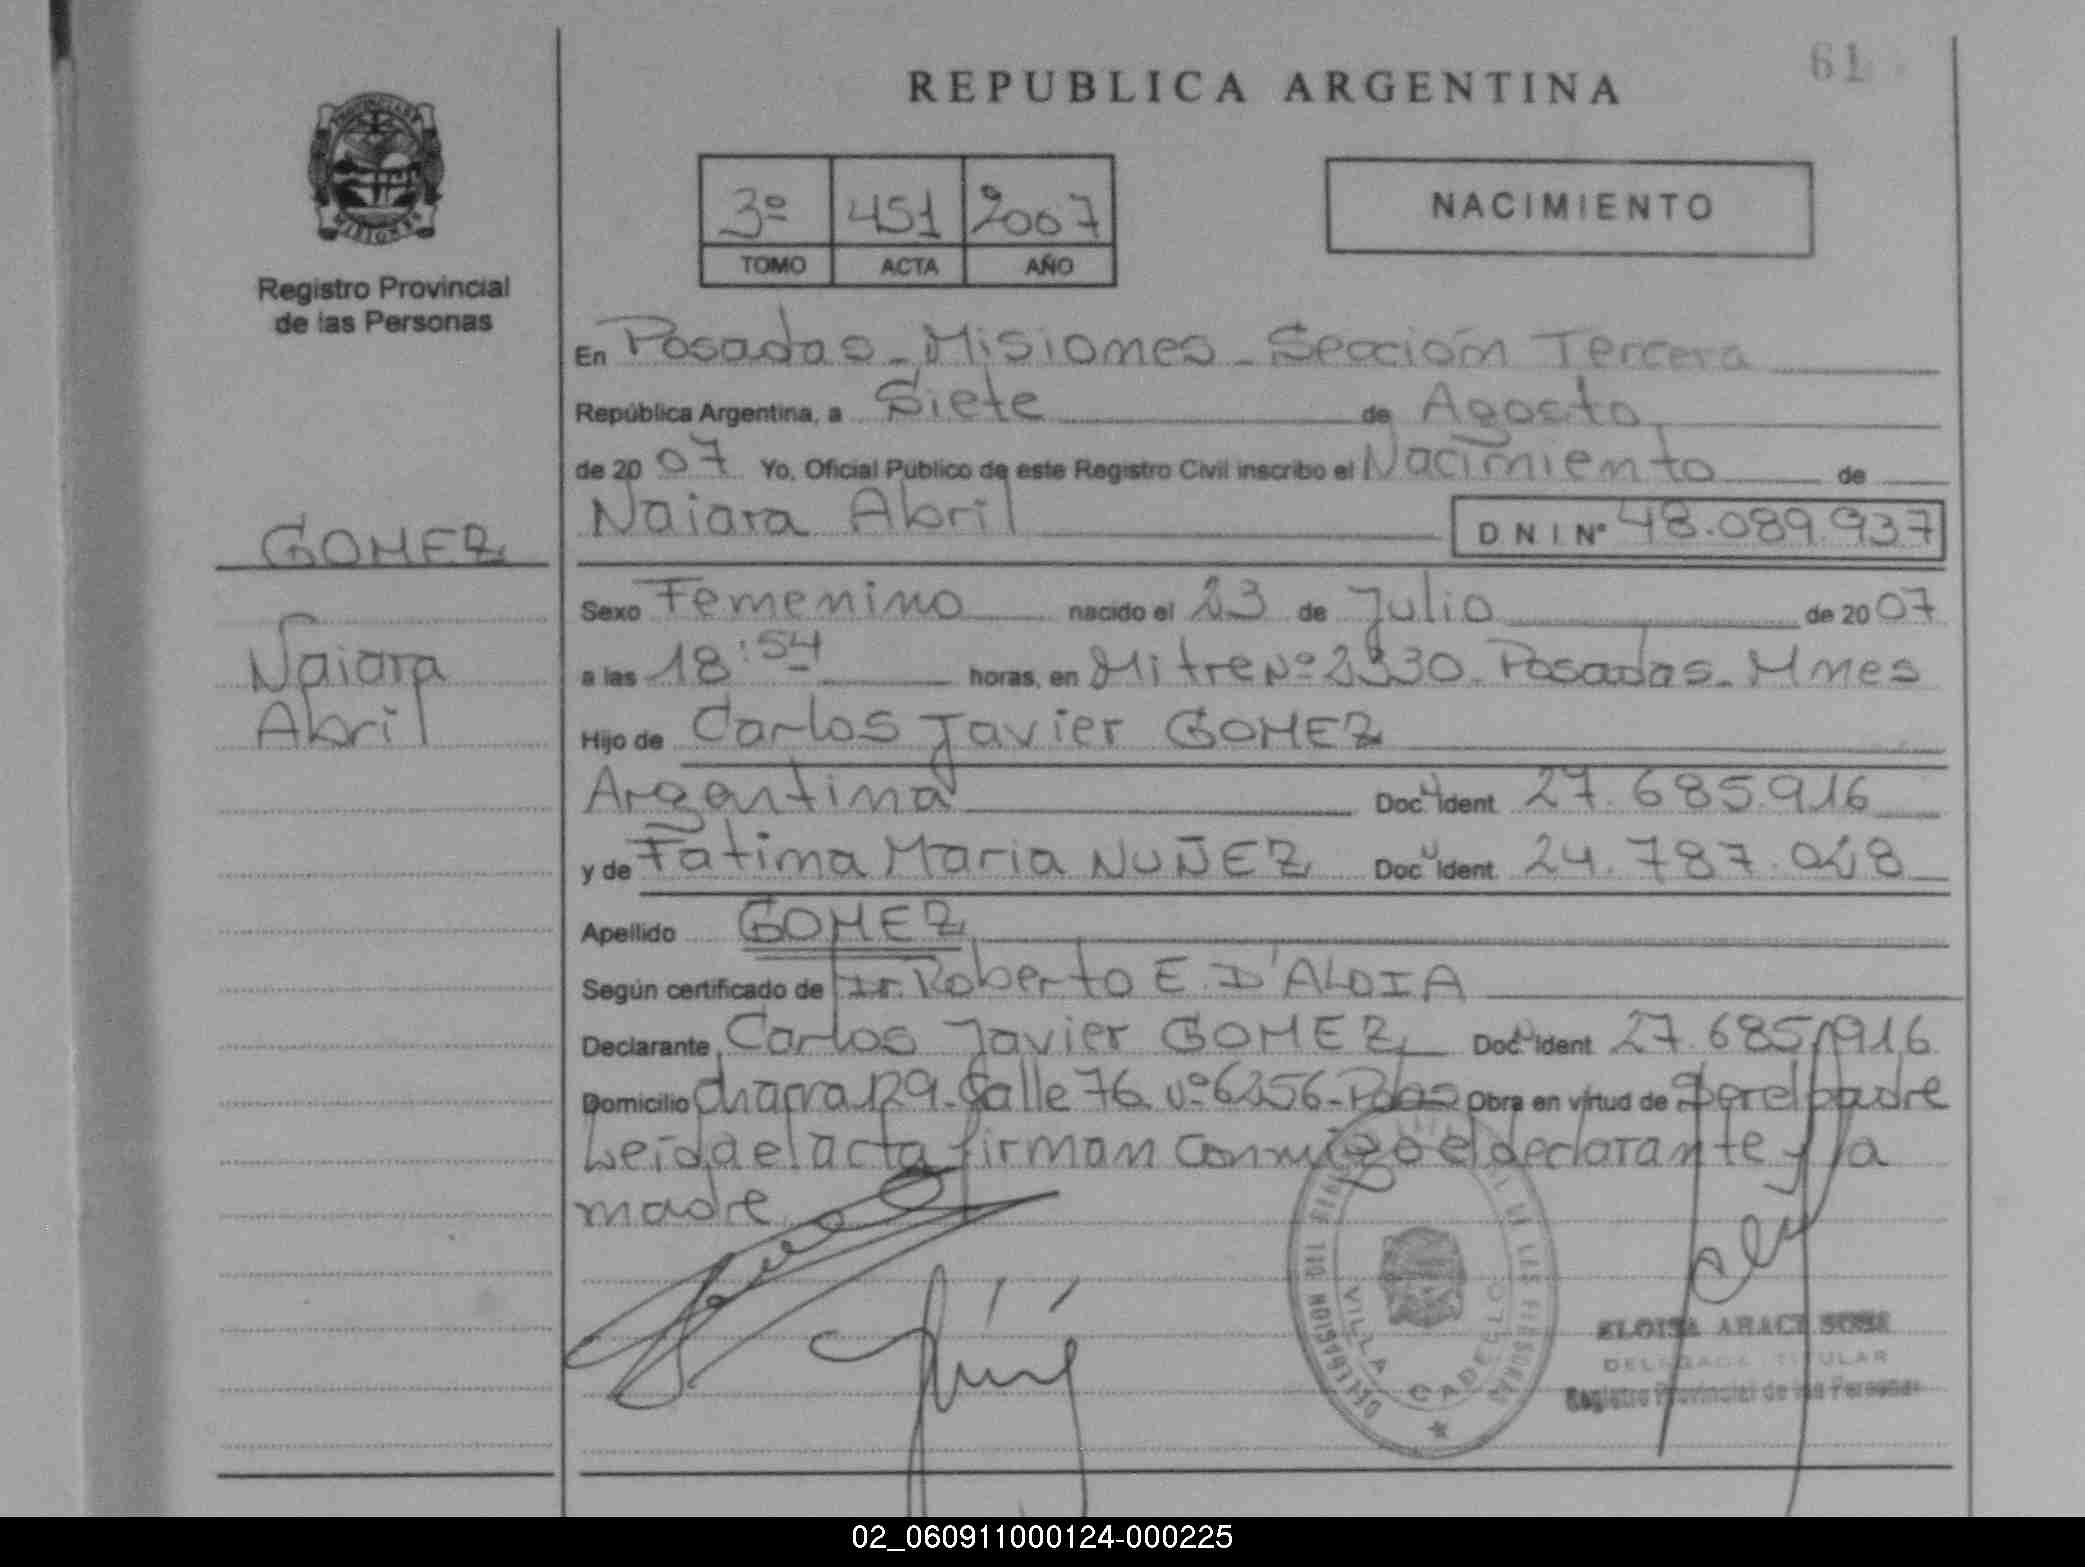 61
REPUBLICA ARGENTINA
PROVINCIA DE
MISIONES
Registro Provincial
de las Personas
3º 451 2007
TOMO ACTA AÑO
NACIMIENTO
En Posadas - Misiones - Sección Tercera
República Argentina, a Siete de Agosto
de 2007 Yo, Oficial Público de este Registro Civil inscribo el Nacimiento de
Naiara Abril DNI Nº 48.089.937
GOMEZ
Naiara
Abril
Sexo Femenino nacido el 23 de Julio de 2007
a las 18:54 horas, en Mitre Nº 2330 - Posadas - Mnes
Hijo de Carlos Javier GOMEZ
Argentina Doc. Ident. 27.685.916
y de Fatima Maria NUÑEZ Doc. Ident. 24.787.028
Apellido GOMEZ
Según certificado de Dr. Roberto E. D'ALOIA
Declarante Carlos Javier GOMEZ Doc. Ident. 27.685.916
Domicilio chacra 129 - Calle 76 Nº 6256 - Pdas Obra en virtud de Ser el padre
Leida el acta firman conmigo el declarante y la
madre
VILLA CABELLO
ELOISA ARACI SOSA
DELEGADA TITULAR
Registro Provincial de las Personas
02_060911000124-000225